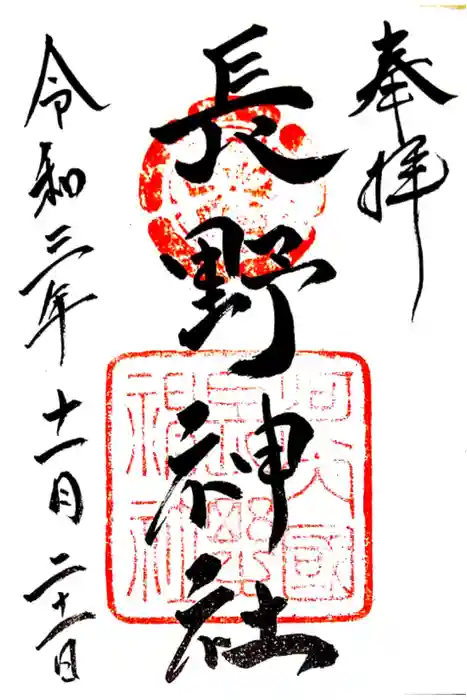 奉拝
長野神社
令和三年十一月二十一日